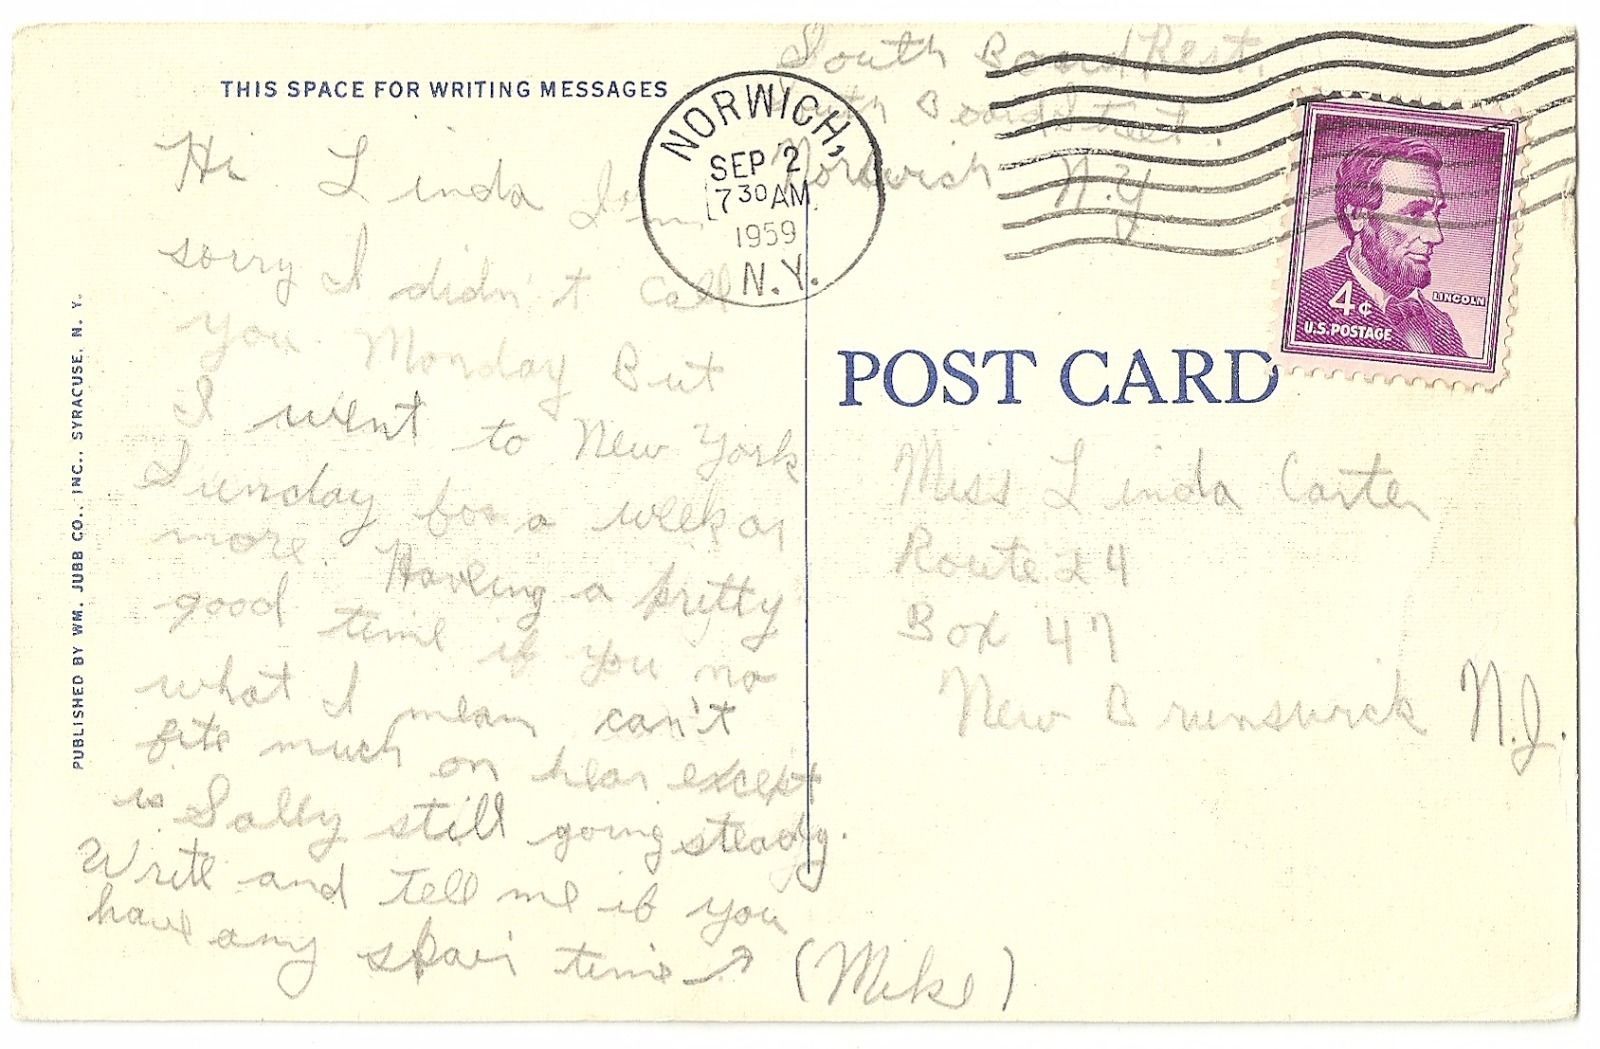 THIS SPACE FOR WRITING MESSAGES
Hi Linda I'm
sorry I didn't call
you Monday But
I went to New York
Sunday for a week or
more. Having a pretty
good time if you no
what I mean can't
fite much on hear except
is Sally still going steady.
Write and tell me if you
have any spair time
(Mike)
PUBLISHED BY WM. JUBB CO., INC., SYRACUSE, N. Y.
South Board Rest.
South Board Street.
Norwich N.Y
NORWICH,
SEP 2
7 30 AM
1959
N.Y.
4¢
LINCOLN
U.S. POSTAGE
POST CARD
Miss Linda Carter
Route 4
Box 47
New Brunswick N.J.